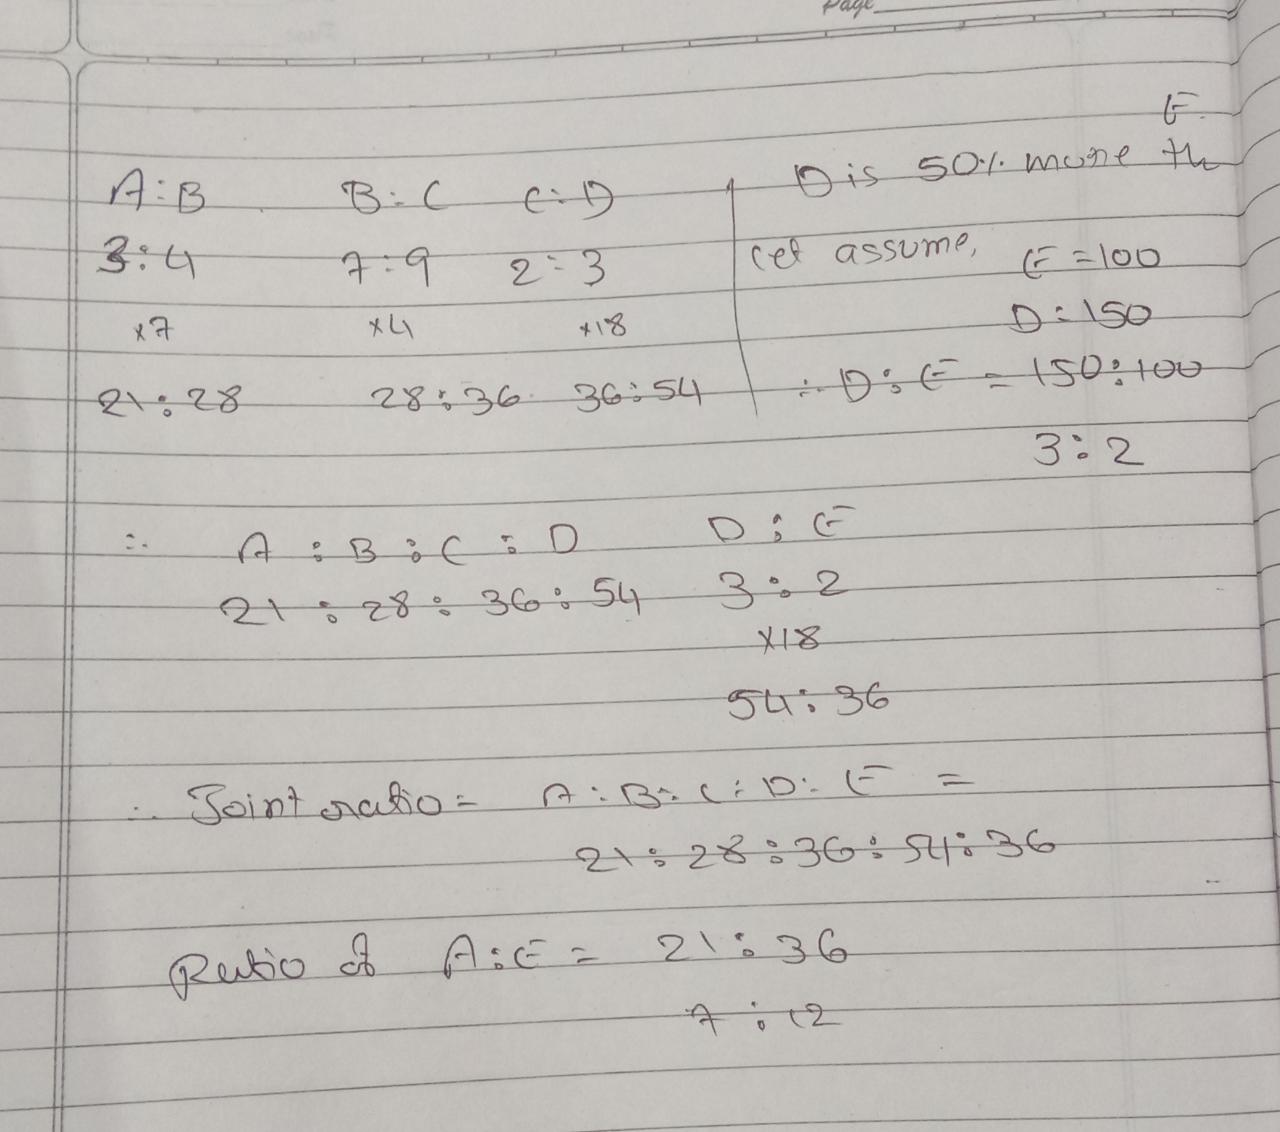 Page
A:B B:C C:D
3:4 7:9 2:3
×7 ×4 ×18
21:28 28:36 36:54
E
D is 50% more th
let assume, E=100
D=150
∴ D:E = 150:100
3:2
∴ A:B:C:D D:E
21:28:36:54 3:2
×18
54:36
∴ Joint ratio = A:B:C:D:E =
21:28:36:54:36
Ratio of A:E = 21:36
7:12